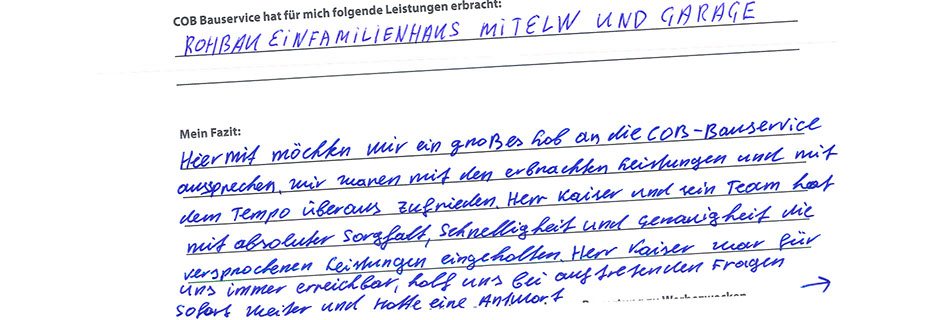 COB Bauservice hat für mich folgende Leistungen erbracht:
ROHBAU EINFAMILIENHAUS MIT ELW UND GARAGE
Mein Fazit:
Hiermit möchten wir ein großes Lob an die COB-Bauservice
aussprechen, wir waren mit den erbrachten Leistungen und mit
dem Tempo überaus zufrieden. Herr Kaiser und sein Team hat
mit absoluter Sorgfalt, Schnelligkeit und Genauigkeit die
versprochenen Leistungen eingehalten. Herr Kaiser war für
uns immer erreichbar, half uns bei auftretenden Fragen
sofort weiter und hatte eine Antwort
→